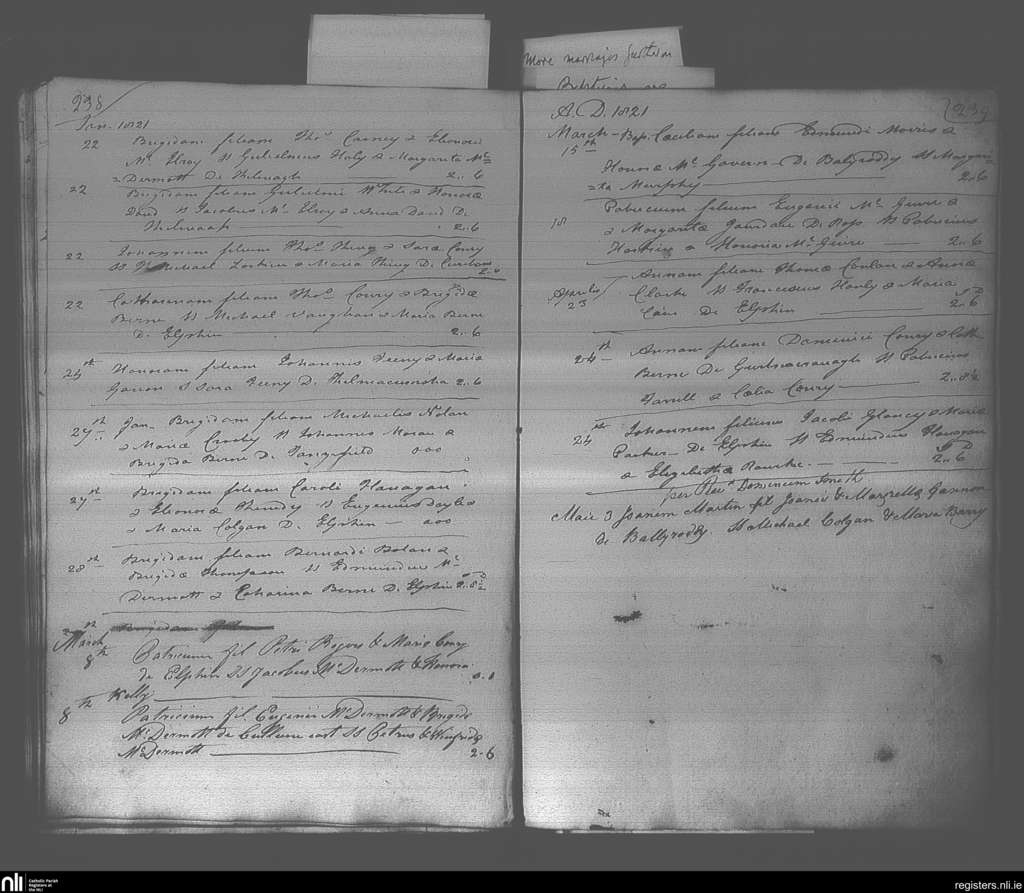 More marriages further on
Baptisms are
238
Jan. 1821
22 Brigidam filiam Thos. Carney & Elonora
Mc. Elroy SS Gulielmus Healy & Margarita Mc=
=Dermott De Kilvoagh 2..6
22 Brigidam filiam Gulielmi White & Honora
David SS Jacobus Mc. Elroy & Anna David De
2..6
22 Johannem filium Thos. & Sara Coury
SS Michael & Maria De 2..6
22 Catharinam filiam Thos. Coury & Brigidæ
Berne SS Michael Vaughan & Maria Berne
De Elphin 2..6
24th Honoram filiam Johannis Feeny & Maria
Garon S Sara Feeny De 2..6
27th Jan. Brigidam filiam Michaelis Nolan
& Mariæ Crosby SS Johannes Moran &
Brigida Berne De ooo
27th Brigidam filiam Caroli Flanagan
& Elonoræ SS Eugenius Dayly
& Maria Colgan De Elphin — ooo
28th Brigidam filiam Bernardi Bolan &
Brigidæ Thompson SS Edmundus Mc.
Dermott & Catharina Berne De Elphin 2..8½
Brigidam
March
8th Patricium fil Petri Rogers & Maria Coury
de Elphin SS Jacobus McDermott & Honoria
Kelly
8th Patricium fil. Eugenii McDermott & Brigide
McDermott de SS Petrus & Winifride
McDermott 2-6
239
A.D. 1821
March - Bap. Cæciliam filiam Edmundi Morris &
15th
Honoræ Mc. Govern - De Ballyroddy SS Margari=
=ta Murphey 2..6
18 Patricium filium Eugenii Mc. Guire &
& Margaritæ Jourdan De Ross SS Patricius
Harkins & Honoria Mc. Guire 2..6
Aprilis
23 Annam filiam Thomæ Conlan & Annæ
Clarke SS Franciscus Hanly & Maria
Cain De Elphin 2..6
24th Annam filiam Dominici Coury & Cath
Berne De SS Patricius
Farrell & Cælia Coury 2..8½
24th Johannem filium Jacobi Glancy & Maria
Parker - De Elphin SS Edmundus Flanagan
& Elizabetha Rourke. 2..6
per Revd Dominicum Smith
Maii 3 Joanem Martin fil Joanis & Margrettæ Gannon
de Ballyroddy. SS Michael Colgan & Maria Barry
nli Catholic Parish
Registers at
the NLI
registers.nli.ie